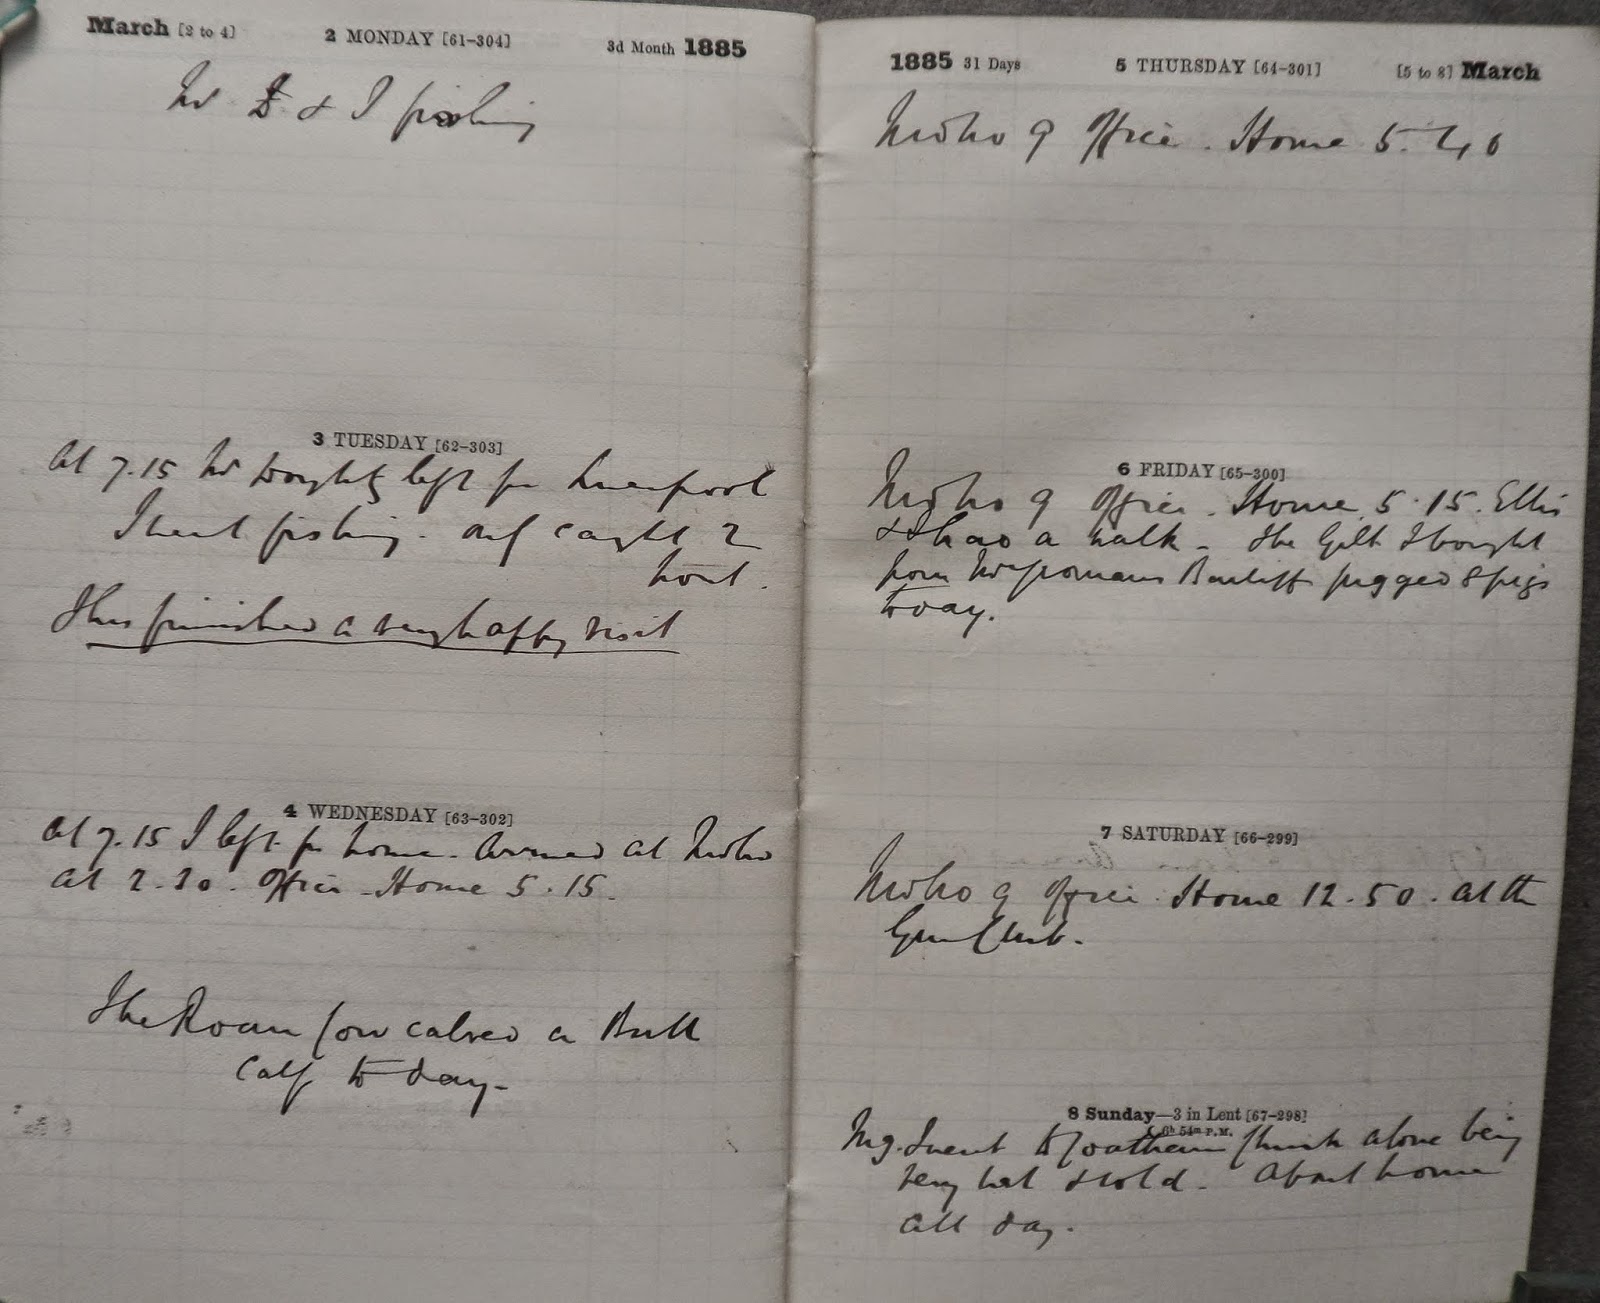 March [2 to 4] 2 MONDAY [61-304] 3d Month 1885
Mr D & I fishing
3 TUESDAY [62-303]
At 7.15 Mr left for Liverpool
I went fishing. only caught 2
trout.
Thus finished a very happy visit
4 WEDNESDAY [63-302]
At 7.15 I left for home. Arrived at
at 2.20. Office. Home 5.15.
The Roan Cow calved a Bull
calf to day.
1885 31 Days 5 THURSDAY [64-301] [5 to 8] March
9 Office. Home 5.40
6 FRIDAY [65-300]
9 Office. Home 5.15. Ellis
& I had a walk. The Gilt I bought
from Bailiff pigged 8 pigs
today.
7 SATURDAY [66-299]
9 Office. Home 12.50. At the
Gun Club.
8 Sunday—3 in Lent [67-298]
6h 54m P.M.
Mg. I went to Coatham Church alone being
very wet & cold. About home
all day.